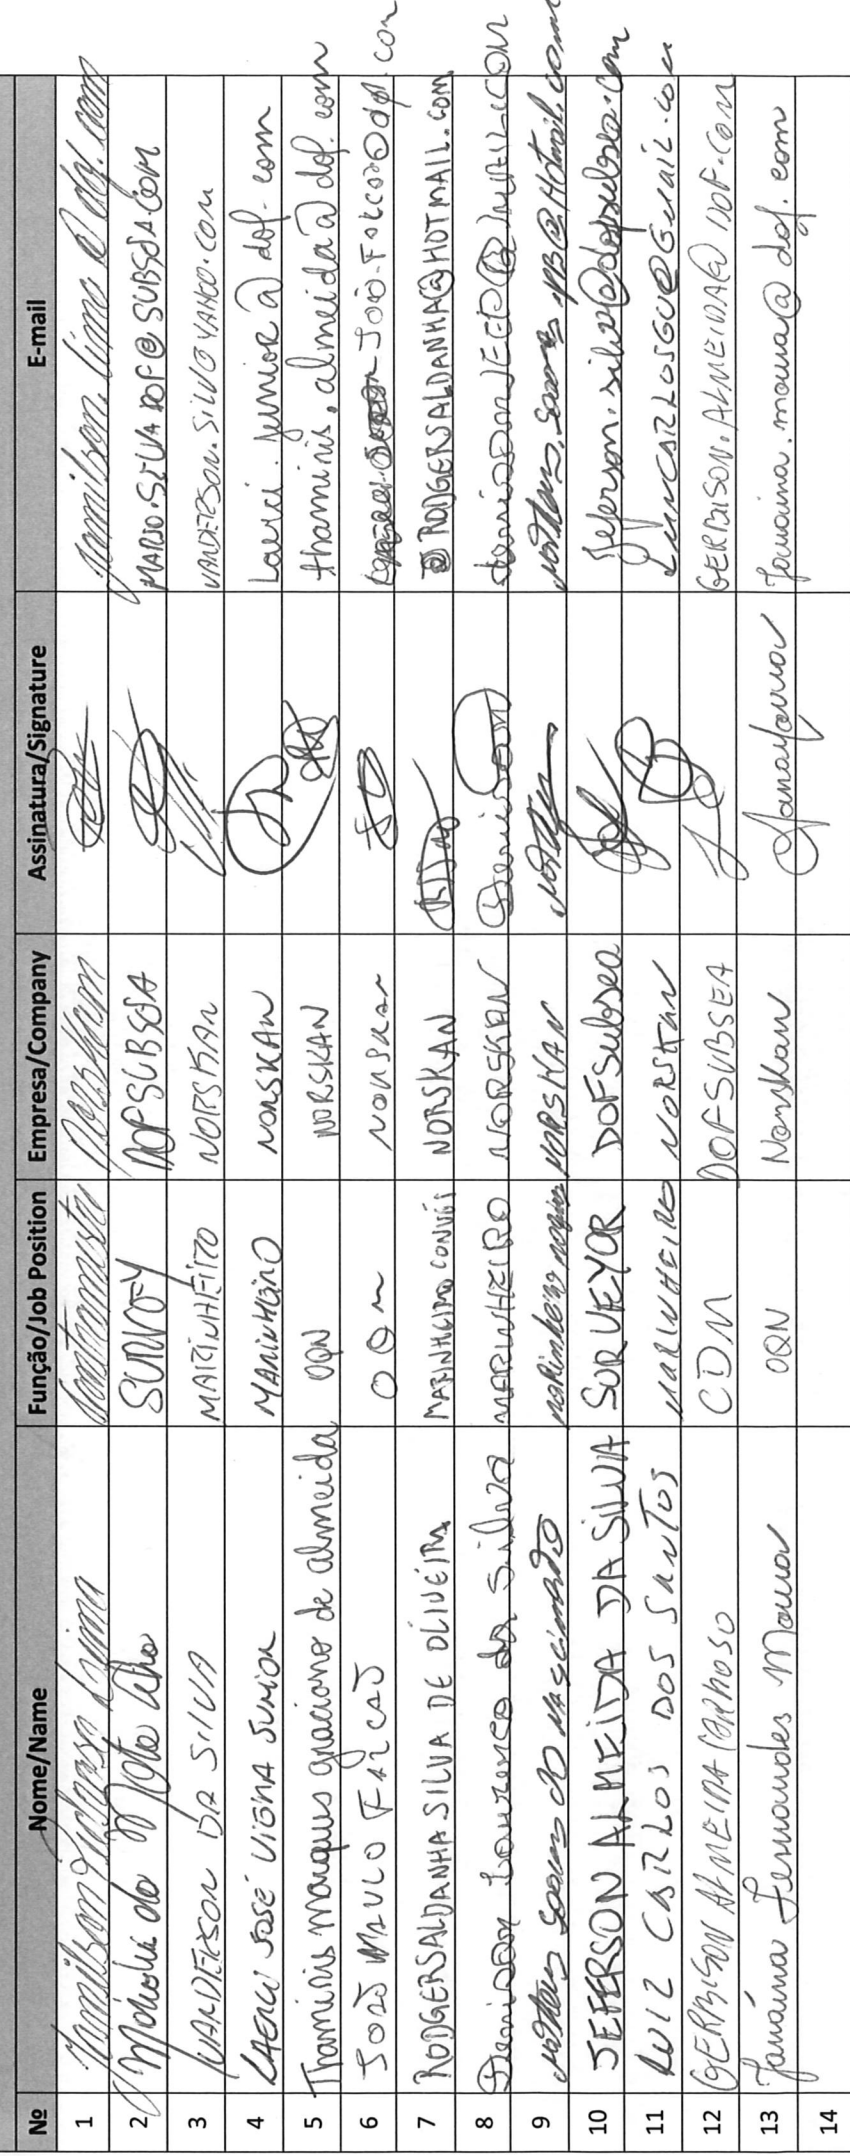 Nº Nome/Name Função/Job Position Empresa/Company Assinatura/Signature E-mail
1 Jamilson Lima Contramestre Norskan jamilson.lima@dof.com
2 da Mota SURVEY DOFSUBSEA MARIO.SILVA DOF@SUBSEA.COM
3 VANDERSON DA SILVA MARINHEIRO NORSKAN VANDERSON.SILVA@YAHOO.COM
4 LAERCI JOSÉ VIGNA JUNIOR MARINHEIRO NORSKAN Laerci.junior@dof.com
5 Thaminis Marques graciano de almeida OQN NORSKAN thaminis.almeida@dof.com
6 JOÃO PAULO FALCÃO OQN NORSKAN JOÃO.FALCAO@dof.com
7 RODGERSALDANHA SILVA DE OLIVEIRA MARINHEIRO CONVÉS NORSKAN RODGERSALDANHA@HOTMAIL.COM
8 Denisson Lourenço da Silva MARINHEIRO NORSKAN
9 Soares do Nascimento Marinheiro NORSKAN
10 JEFERSON ALMEIDA DA SILVA SURVEYOR DOFSubsea Jeferson.silva@dofsubsea.com
11 LUIZ CARLOS DOS SANTOS MARINHEIRO NORSKAN
12 GERBISON ALMEIDA CDM DOFSUBSEA GERBISON.ALMEIDA@DOF.COM
13 Janaína Fernandes Moura OQN Norskan Janaina.moura@dof.com
14